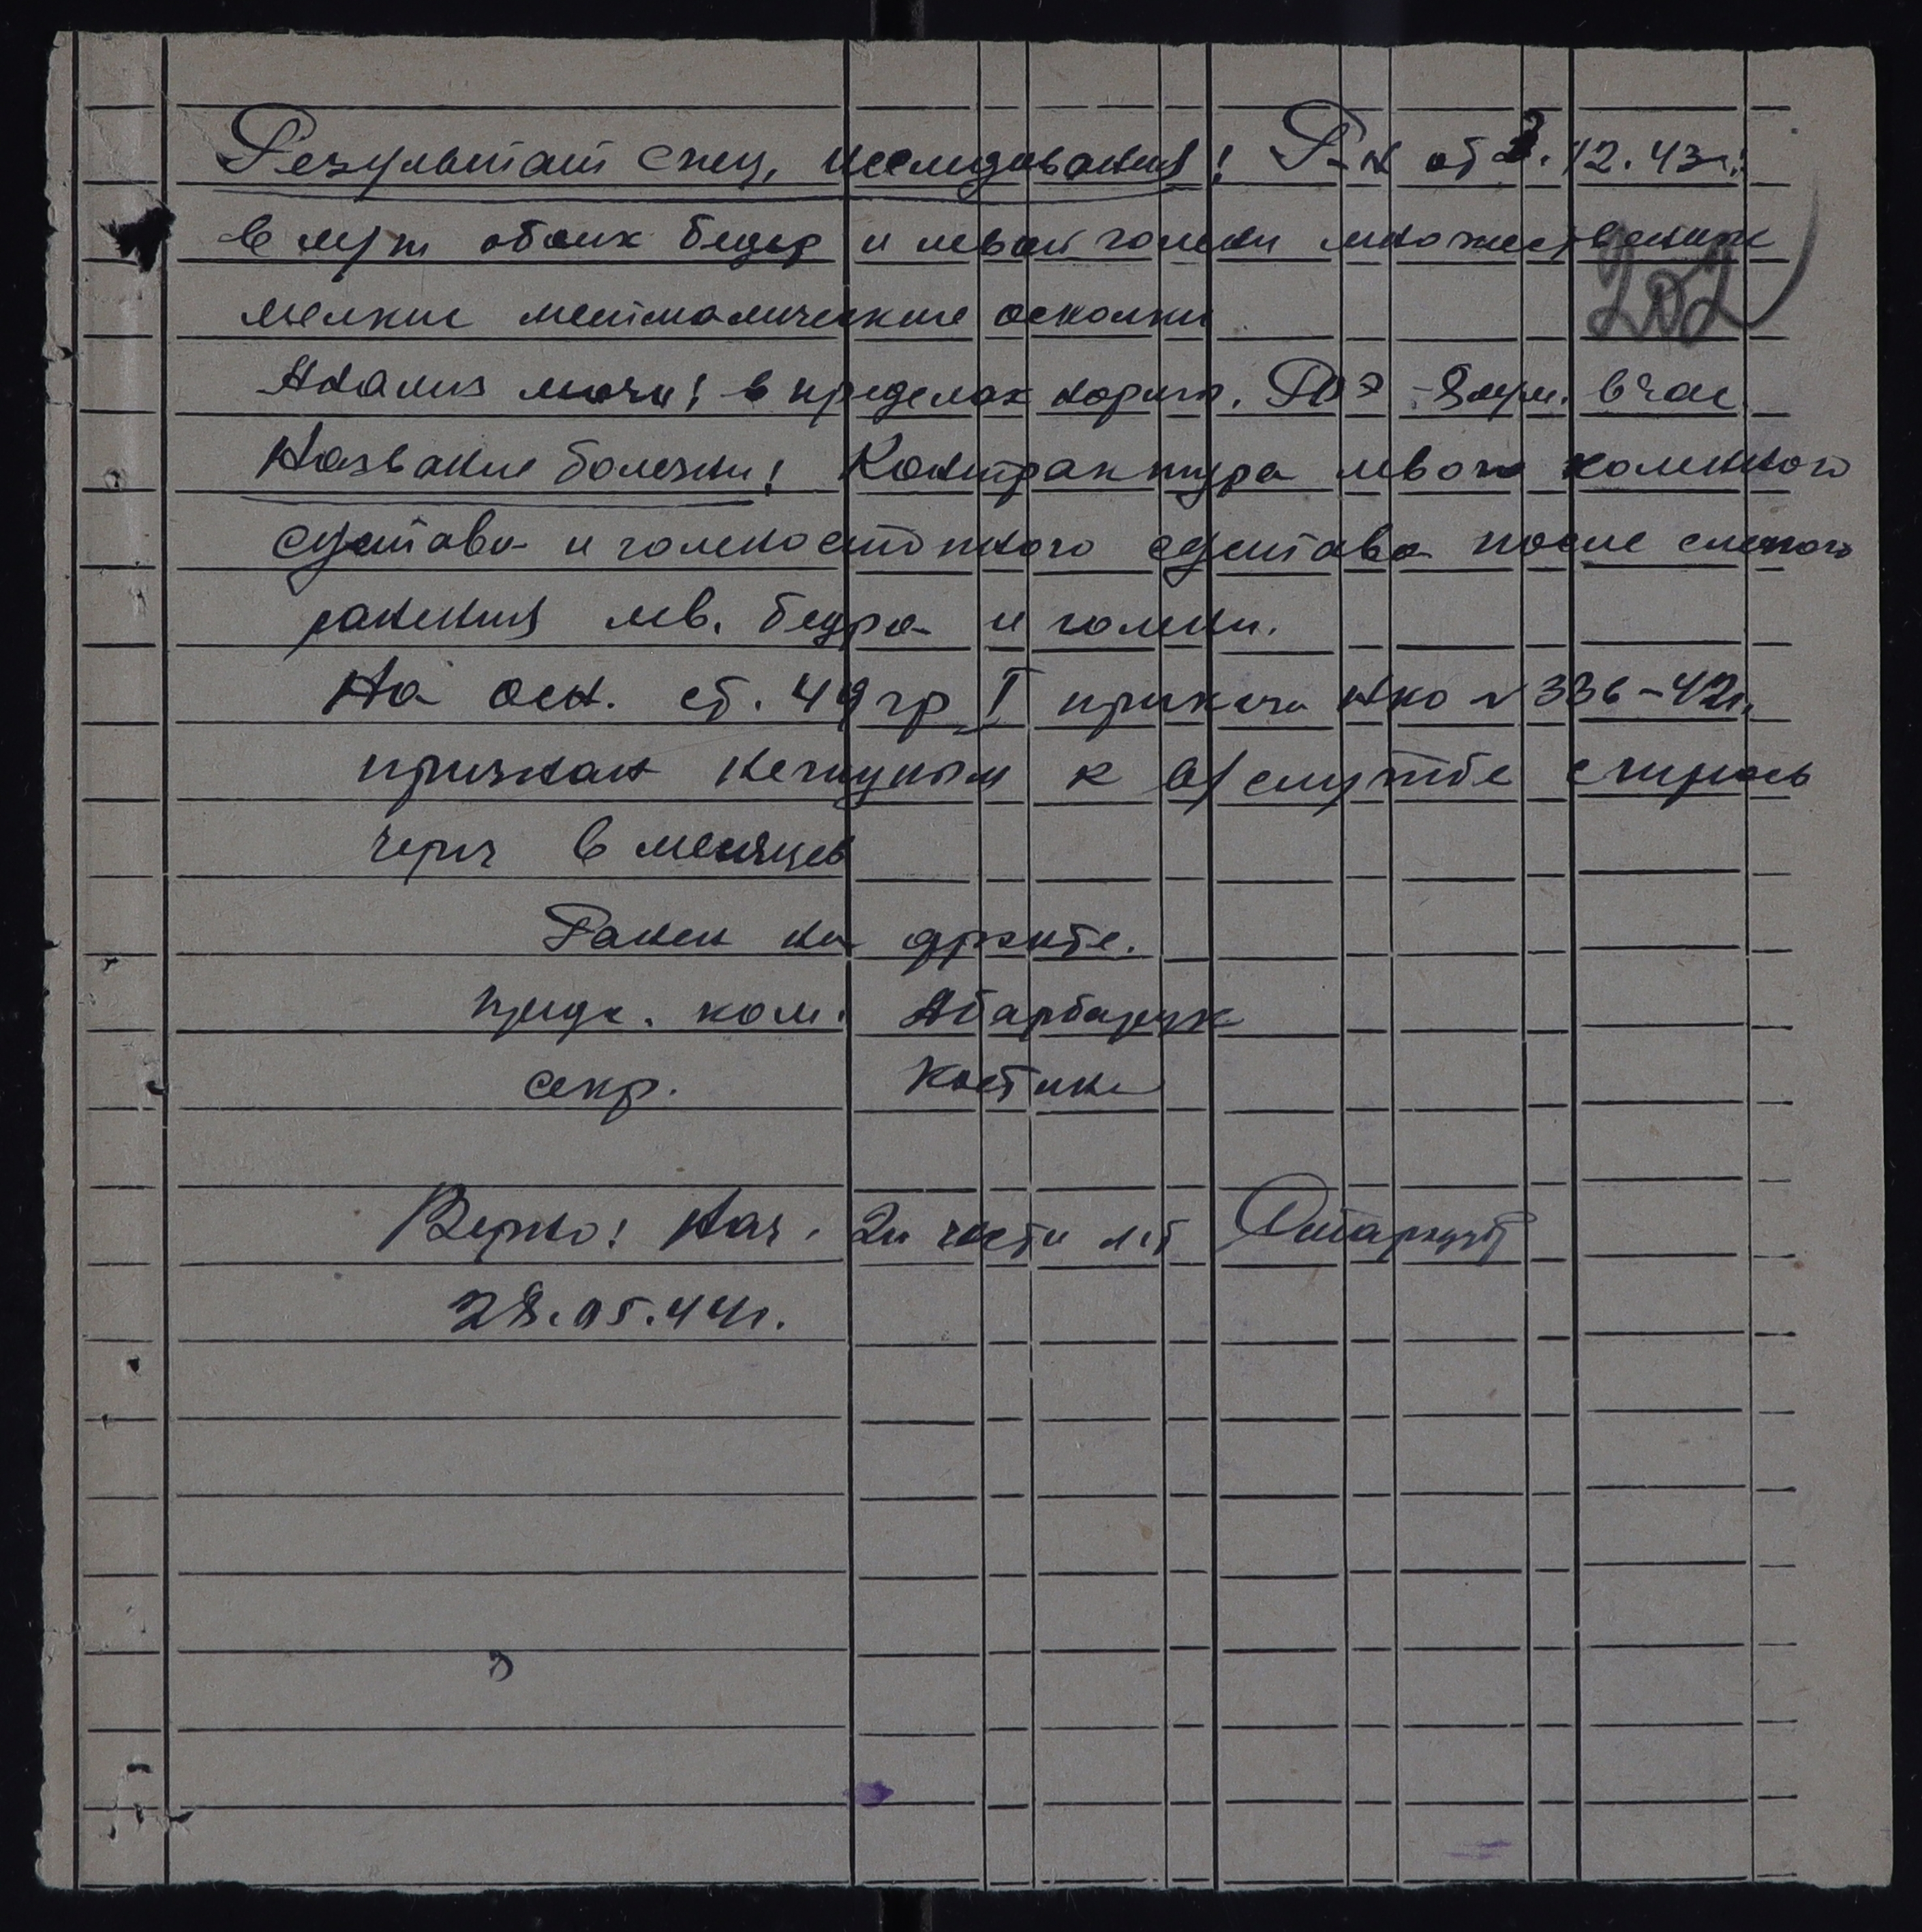 Результат спец. исследования: R-н от 3.12.43г.:
в м/т обоих бедер и левой голени множественные
202
мелкие металлические осколки
Анализ мочи: в пределах нормы. РОЭ - 8 м/м. в час
Название болезни: Контрактура левого коленного
сустава и голеностопного сустава после слепого
ранения лев. бедра и голени.
На осн. ст. 49 гр I приказа НКО № 336-42г.
признан негодным к в/службе с перeосв
через 6 месяцев
Ранен на фронте.
предс. ком.
секр. Костин
Верно: Нач. 2й части л-т
28.05.44г.